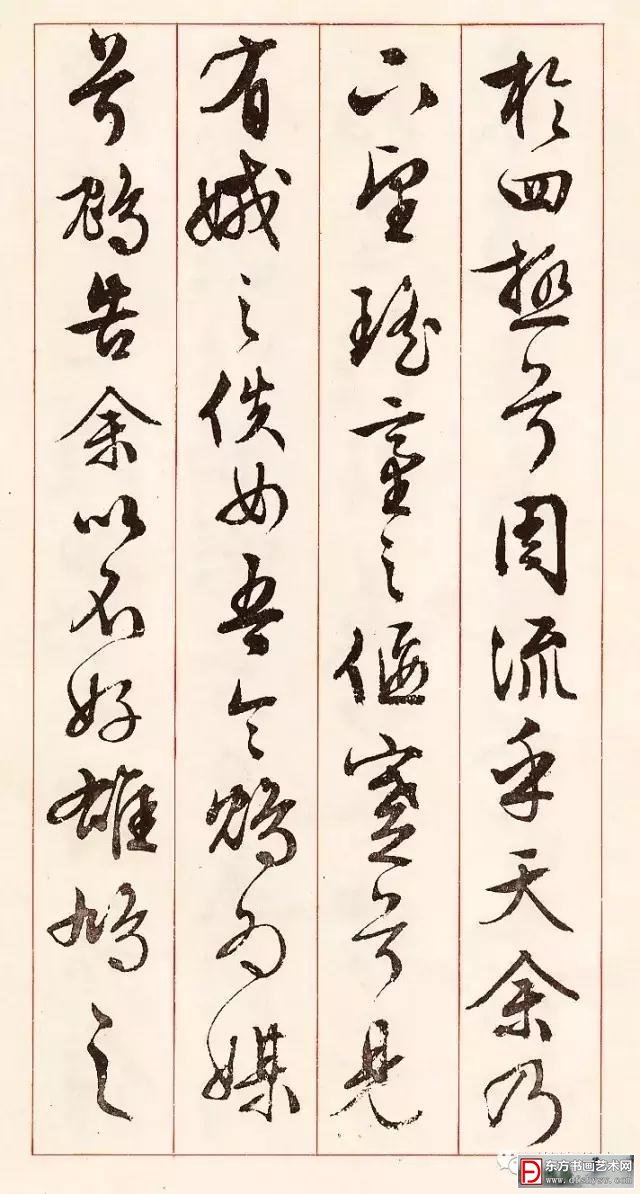 於四極兮周流乎天余乃
下望瑤臺之偃蹇兮見
有娀之佚女吾令鴆為媒
兮鴆告余以不好雄鳩之
东方书画艺术网